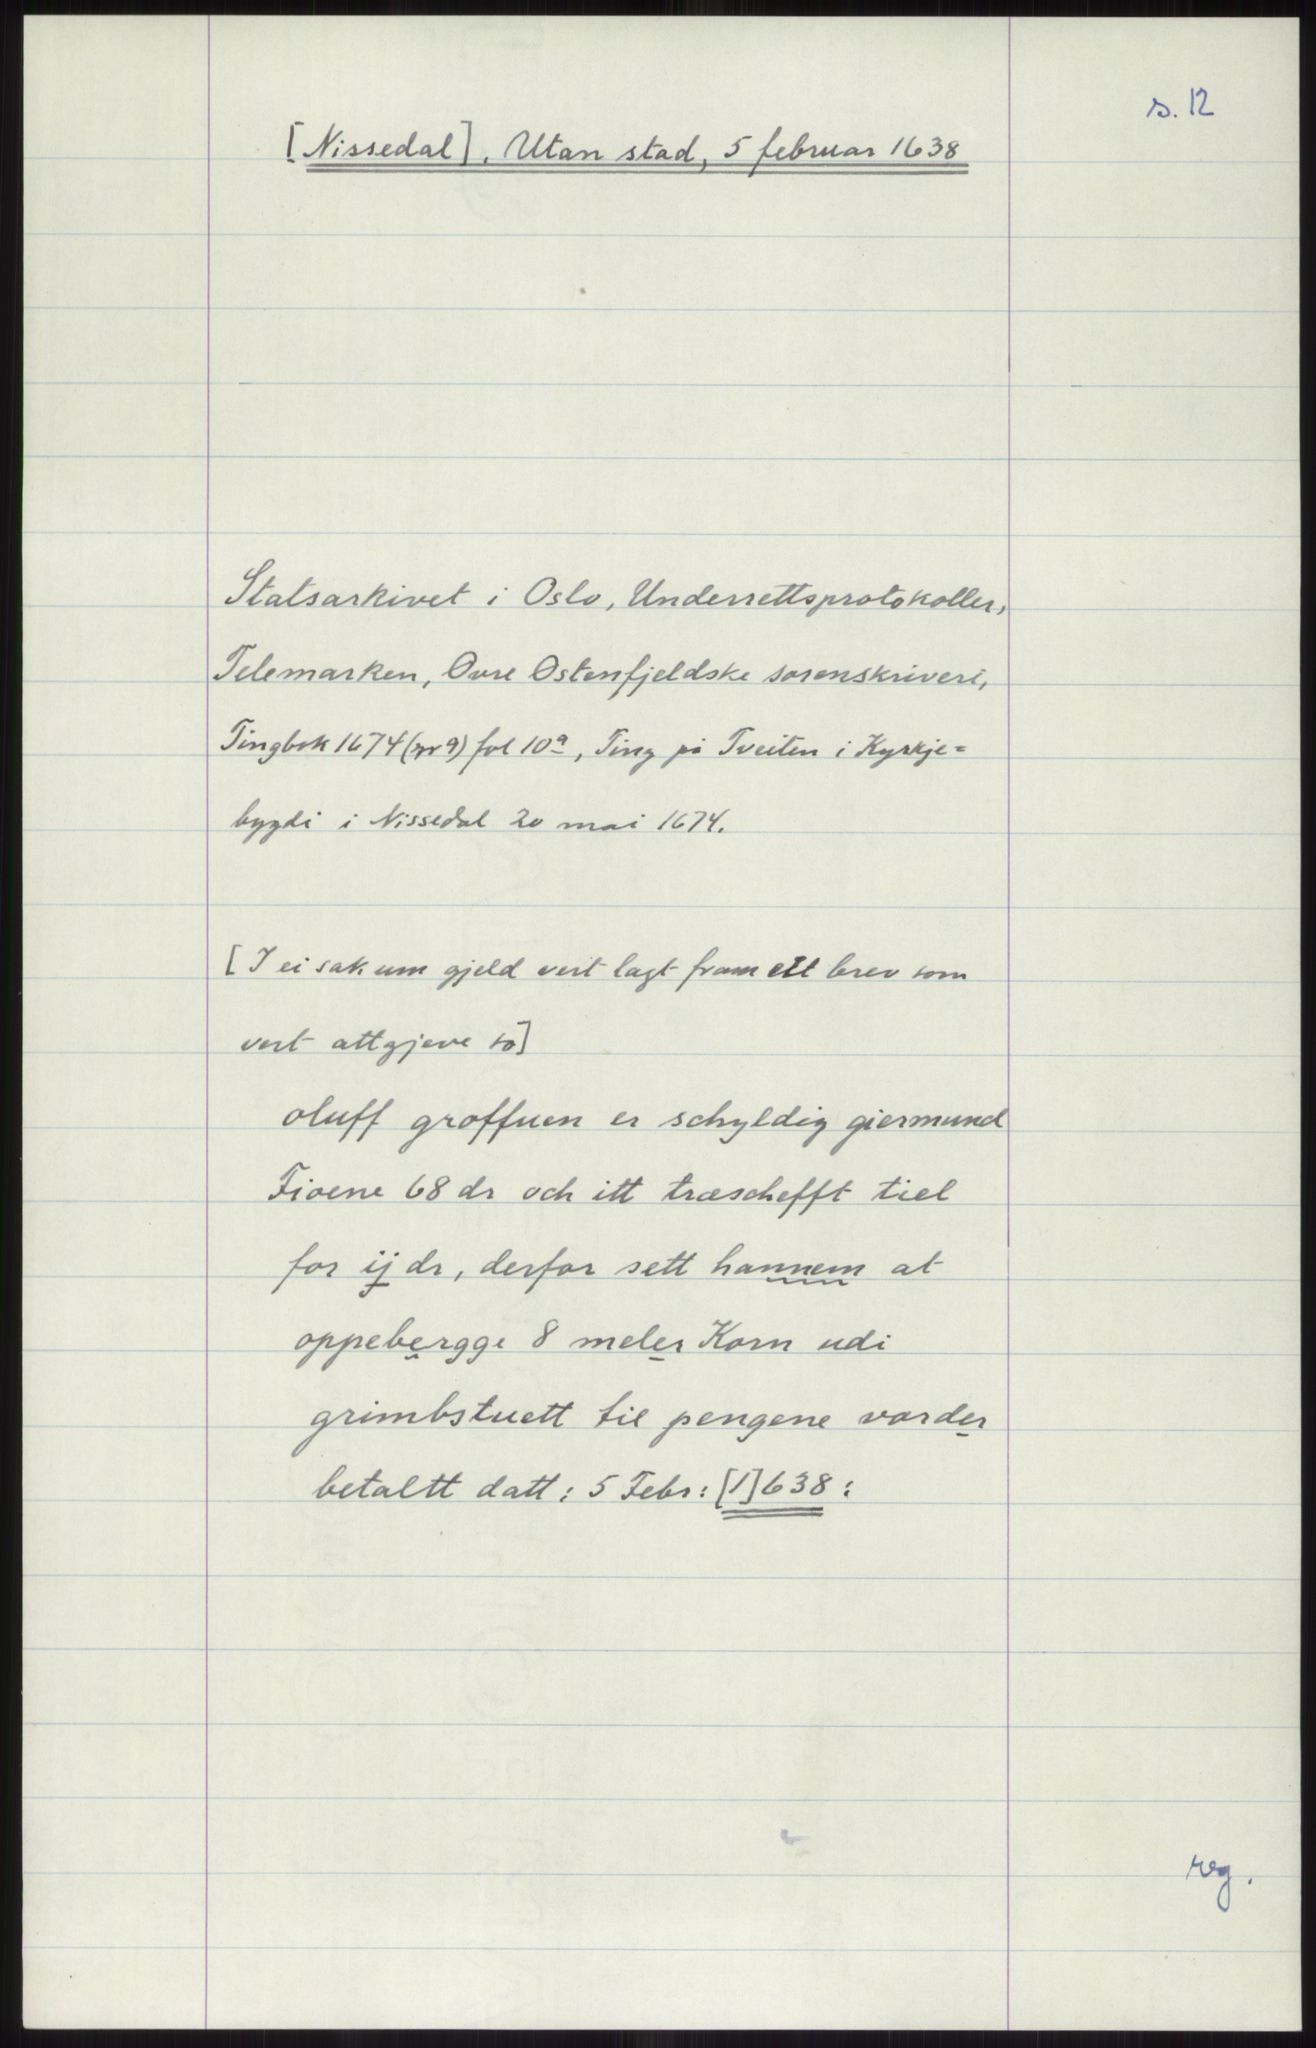 s. 12
[Nissedal], Utan stad, 5 februar 1638
Statsarkivet i Oslo, Underrettsprotokoller,
Telemarken, Øvre Østenfjeldske sorenskriveri,
Tingbok 1674 (nr 9) fol 10a, Ting på Tveiten i Kyrkje=
bygdi i Nissedal 20 mai 1674.
[I ei sak um gjeld vert lagt fram eit brev som
vert attgjeve so]
oluff groffuen er schyldig giermund
Fioene 68 dr och itt træschefft tiel
for ij dr, derfor sett hannem at
oppebergge 8 meler Korn udi
grimbstuett til pengene vorder
betaltt datt: 5 Febr: [1]638:
reg.